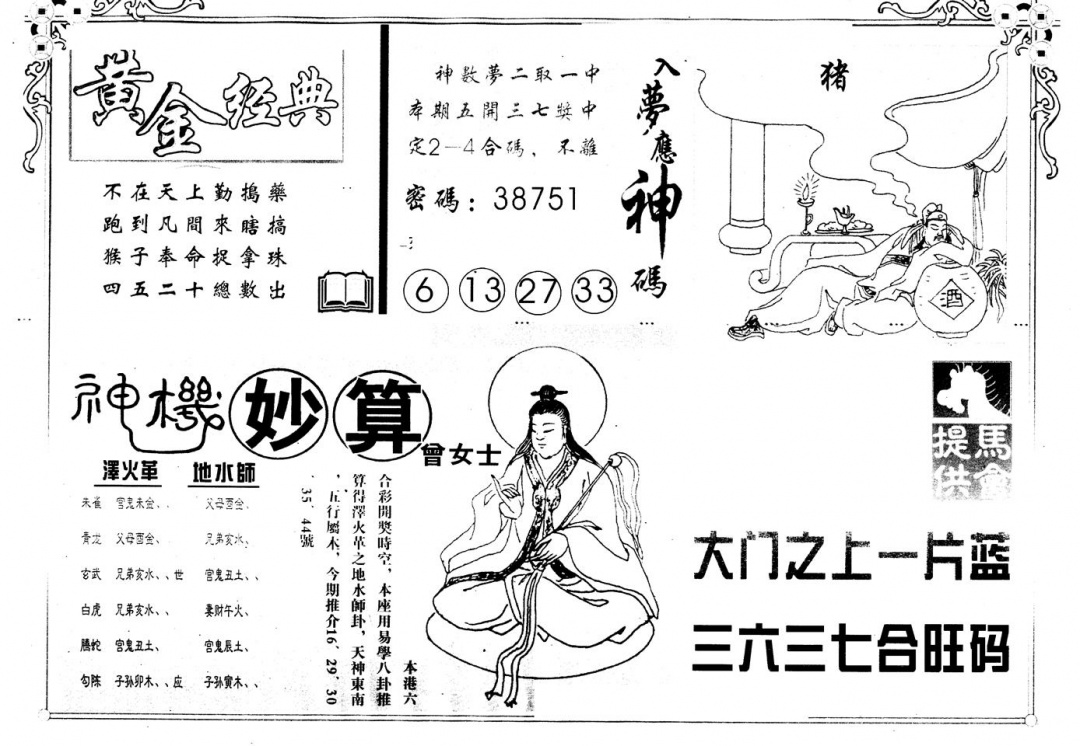 黃金經典
不在天上勤搗藥
跑到凡間來瞎搞
猴子奉命捉拿珠
四五二十總數出
神數夢二取一中
本期五開三七獎中
定2—4合碼、不離
密碼：38751
6 13 27 33
入夢應神碼
猪
酒
神機妙算
曾女士
澤火革 地水師
朱雀 官鬼未金、、 父母酉金、、
青龙 父母酉金、 兄弟亥水、、
玄武 兄弟亥水、、世 官鬼丑土、、
白虎 兄弟亥水、、 妻財午火、
騰蛇 官鬼丑土、 官鬼辰土、
勾陈 子孙卯木、、应 子孫寅木、、
本港六
合彩開獎時空，本座用易學八卦推
算得澤火革之地水師卦，天神東南
，五行屬木，今期推介16、29、30
、35、44號
馬會提供
大门之上一片蓝
三六三七合旺码